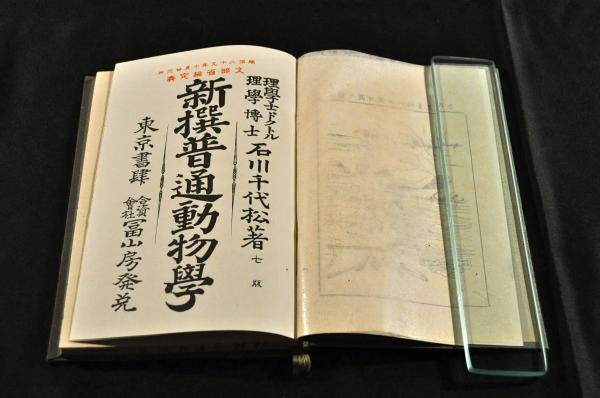 文部省檢定濟
理學士ドクトル
理學博士
石川千代松著 七版
新撰普通動物學
東京書肆
合資
會社
冨山房發兌